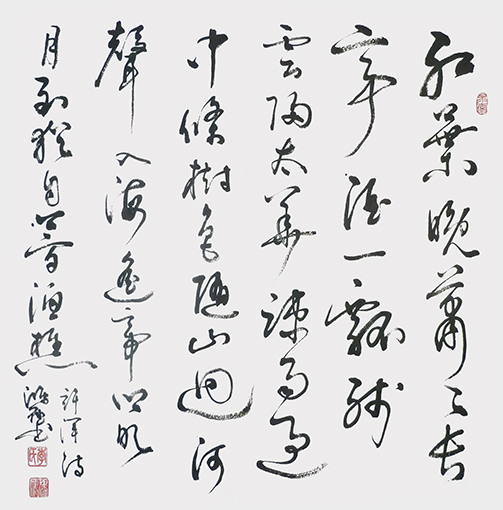 紅葉晚蕭々長
亭酒一瓢殘
雲歸太華疎雨過
中條樹色随山迥河
聲入海遙帝鄉明
日到猶自夢漁樵
許渾詩